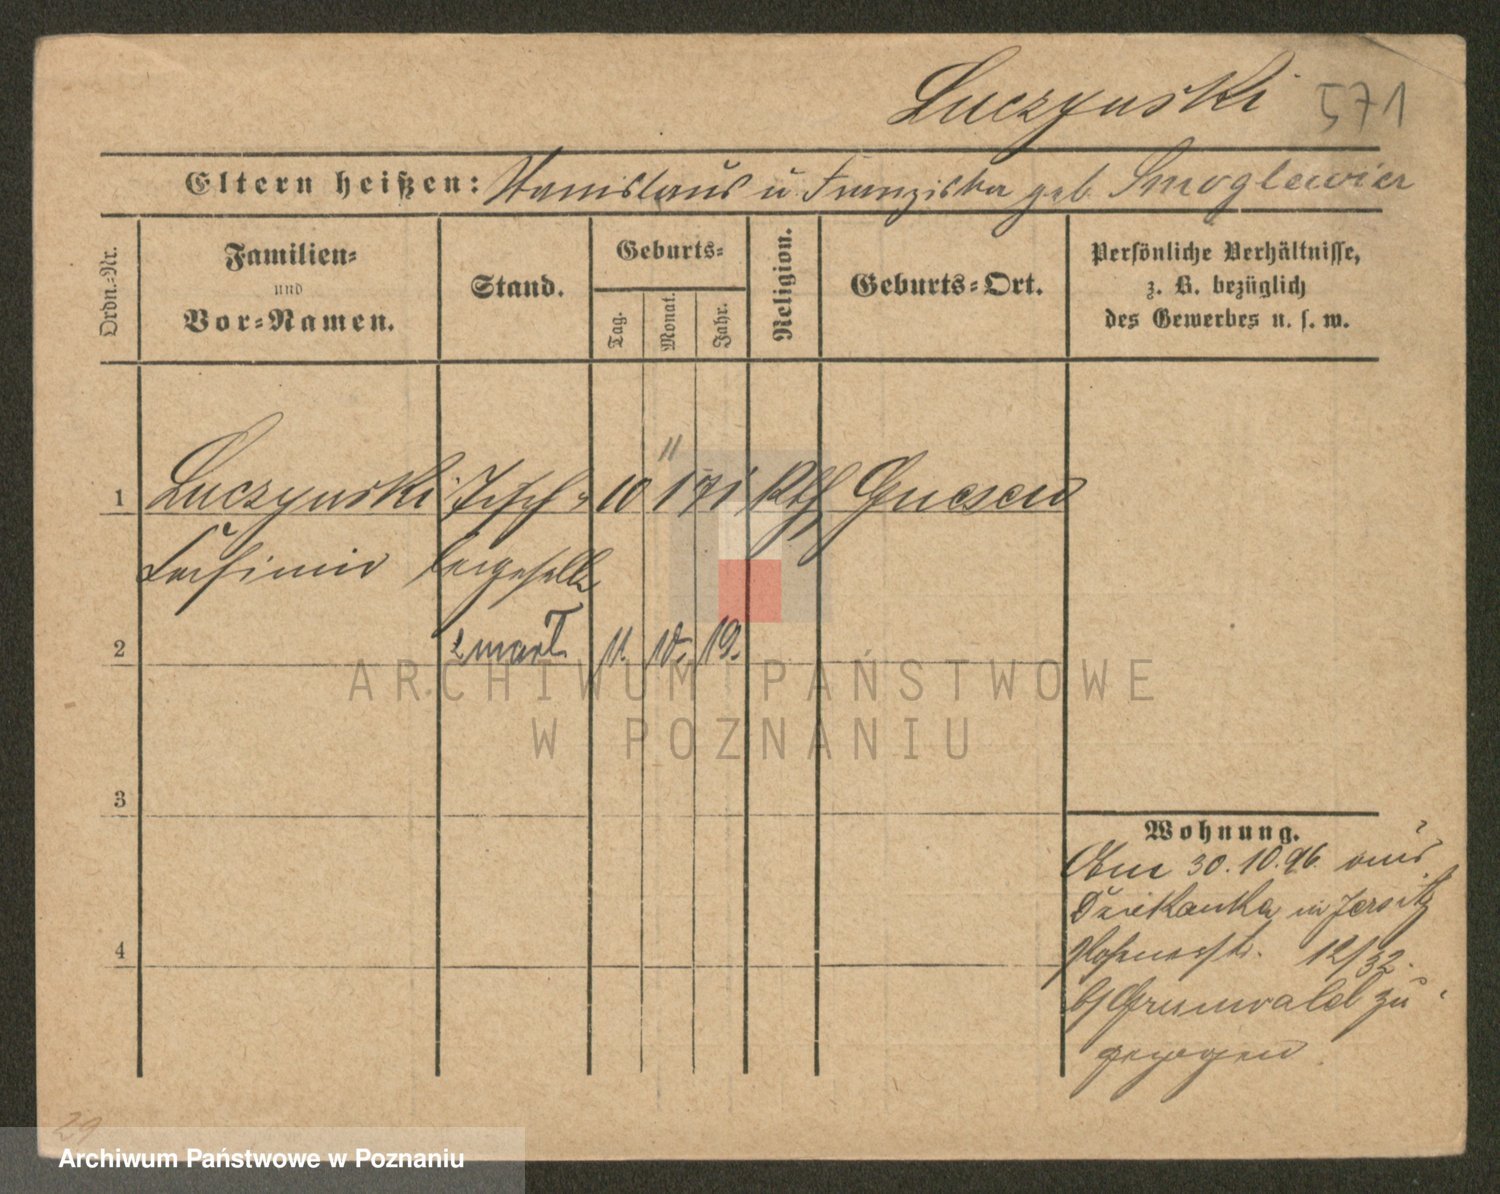 Luczynski 571
Eltern heißen: Stanislaus u. Franziska geb. Smoglewicz
Ordn.-Nr.
Familien-
und
Vor-Namen.
Stand.
Geburts-
Tag.
Monat.
Jahr.
Religion.
Geburts-Ort.
Persönliche Verhältnisse,
z. B. bezüglich
des Gewerbes u. s. w.
11
1 Luczynski Tisch= 10 1 71 kth Gnesen
Casimir lergeselle
2 11. 10. 19.
3
Wohnung.
Am 30.10.96 aus
Dziekanka in Jersitz
12/32.
4
b/Grunwald zu
gezogen
29
ARCHIWUM PAŃSTWOWE
W POZNANIU
Archiwum Państwowe w Poznaniu